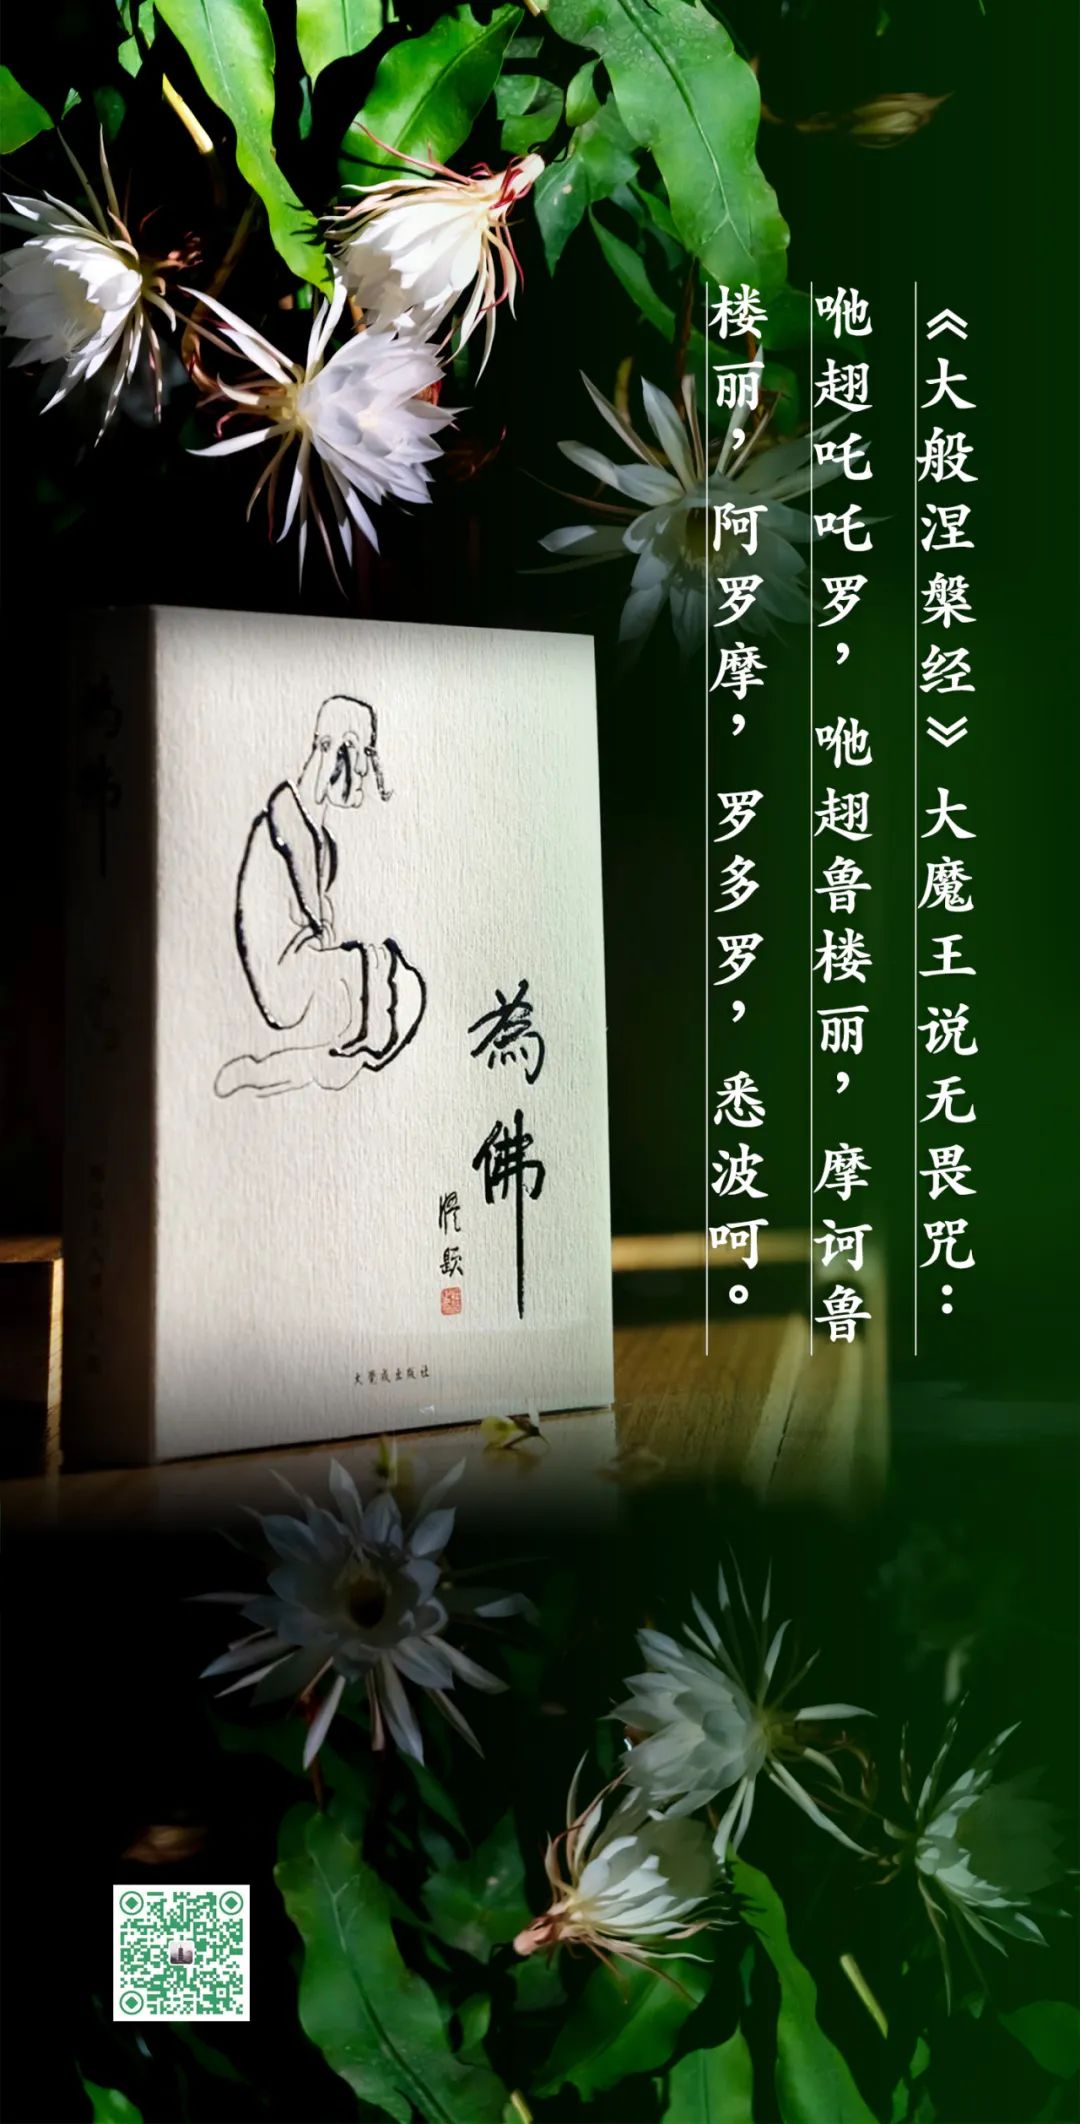 《大般涅槃经》大魔王说无畏咒：
咃趐吒吒罗，咃趐鲁楼丽，摩诃鲁
楼丽，阿罗摩，罗多罗，悉波呵。
為佛
题
大觉成出版社